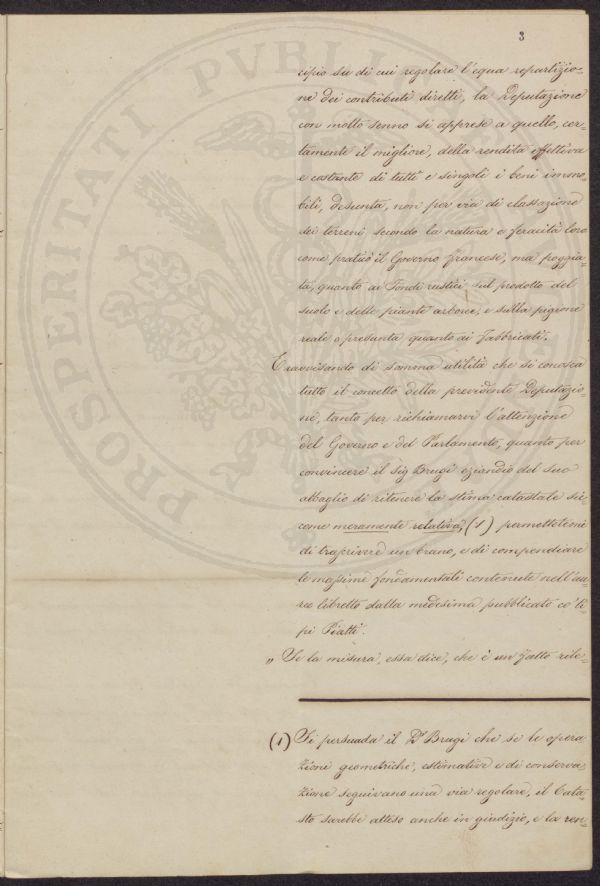 3
cipio su di cui regolare l'equa repartizio-
ne dei contributi diretti, la Deputazione
con molto senno si apprese a quello, cer-
tamente il migliore, della rendita effettiva
e costante di tutti e singoli i beni immo-
bili, desunta, non per via di classazione
dei terreni secondo la natura e feracità loro
come praticò il Governo francese, ma poggia-
ta, quanto ai Fondi rustici sul prodotto del
suolo e delle piante arboree, e sulla pigione
reale o presunta quanto ai Fabbricati.
E ravvisando di somma utilità che si conosca
tutto il concetto della previdente Deputazio-
ne, tanto per richiamarvi l'attenzione
del Governo e del Parlamento, quanto per
convincere il Sig Brugi eziandio del suo
abbaglio di ritenere la stima catastale sic-
come meramente relativa, (1) permettetemi
di trascrivere un brano, e di compendiare
le massime fondamentali contenute nell'au-
reo libretto dalla medesima pubblicato co' ti-
pi Piatti.
„ Se la misura, essa dice, che è un fatto rile-
(1) Si persuada il Dr Brugi che se le opera
zioni geometriche, estimative e di conserva
zione seguivano una via regolare, il Cata-
sto sarebbe atteso anche in giudizio, e la ren-
PROSPERITATI PVBLI